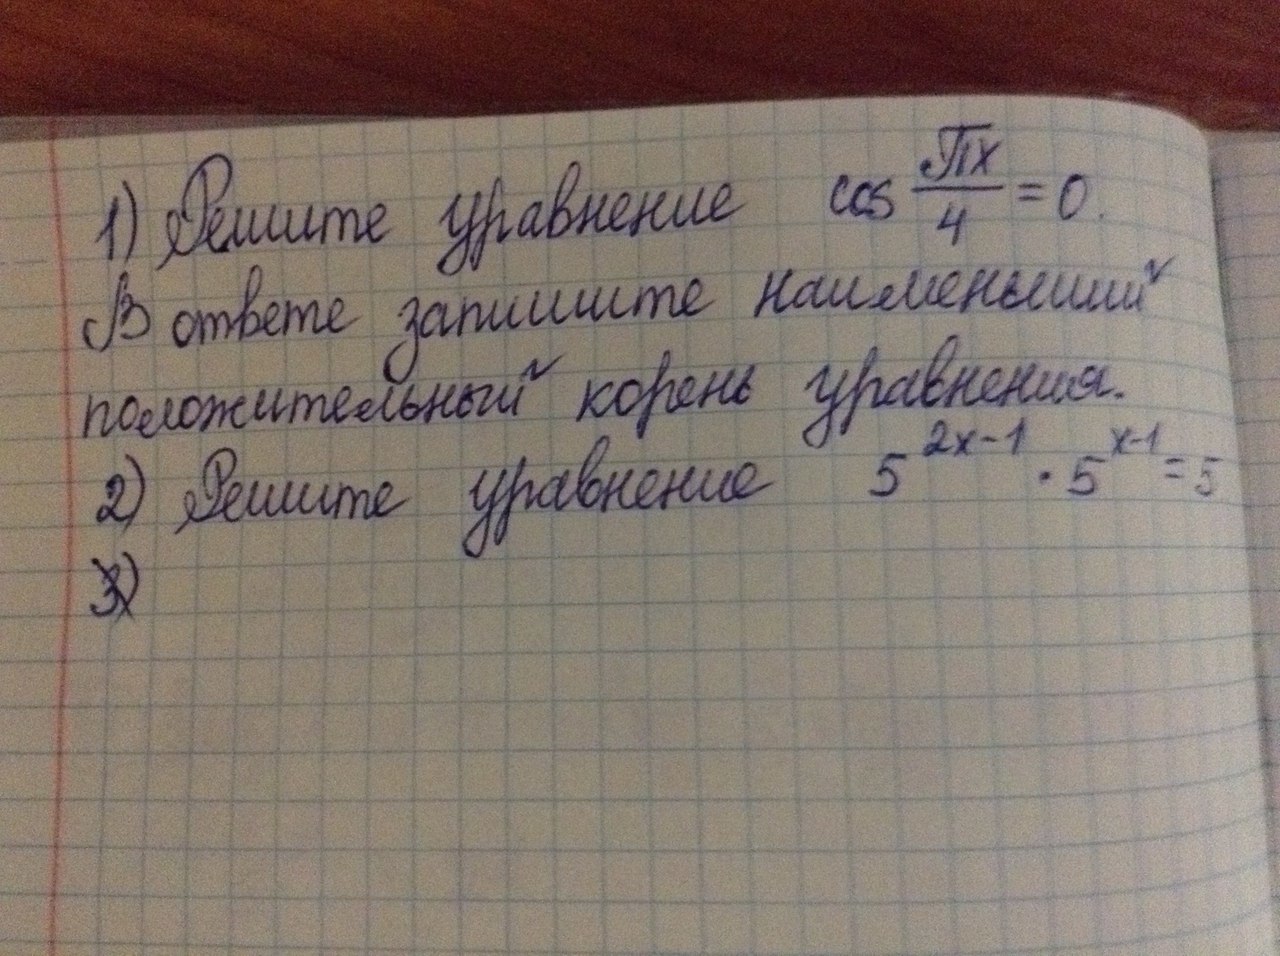 1) Решите уравнение cos πx/4 = 0.
В ответе запишите наименьший
положительный корень уравнения.
2) Решите уравнение 5^(2x-1) · 5^(x-1) = 5
3)